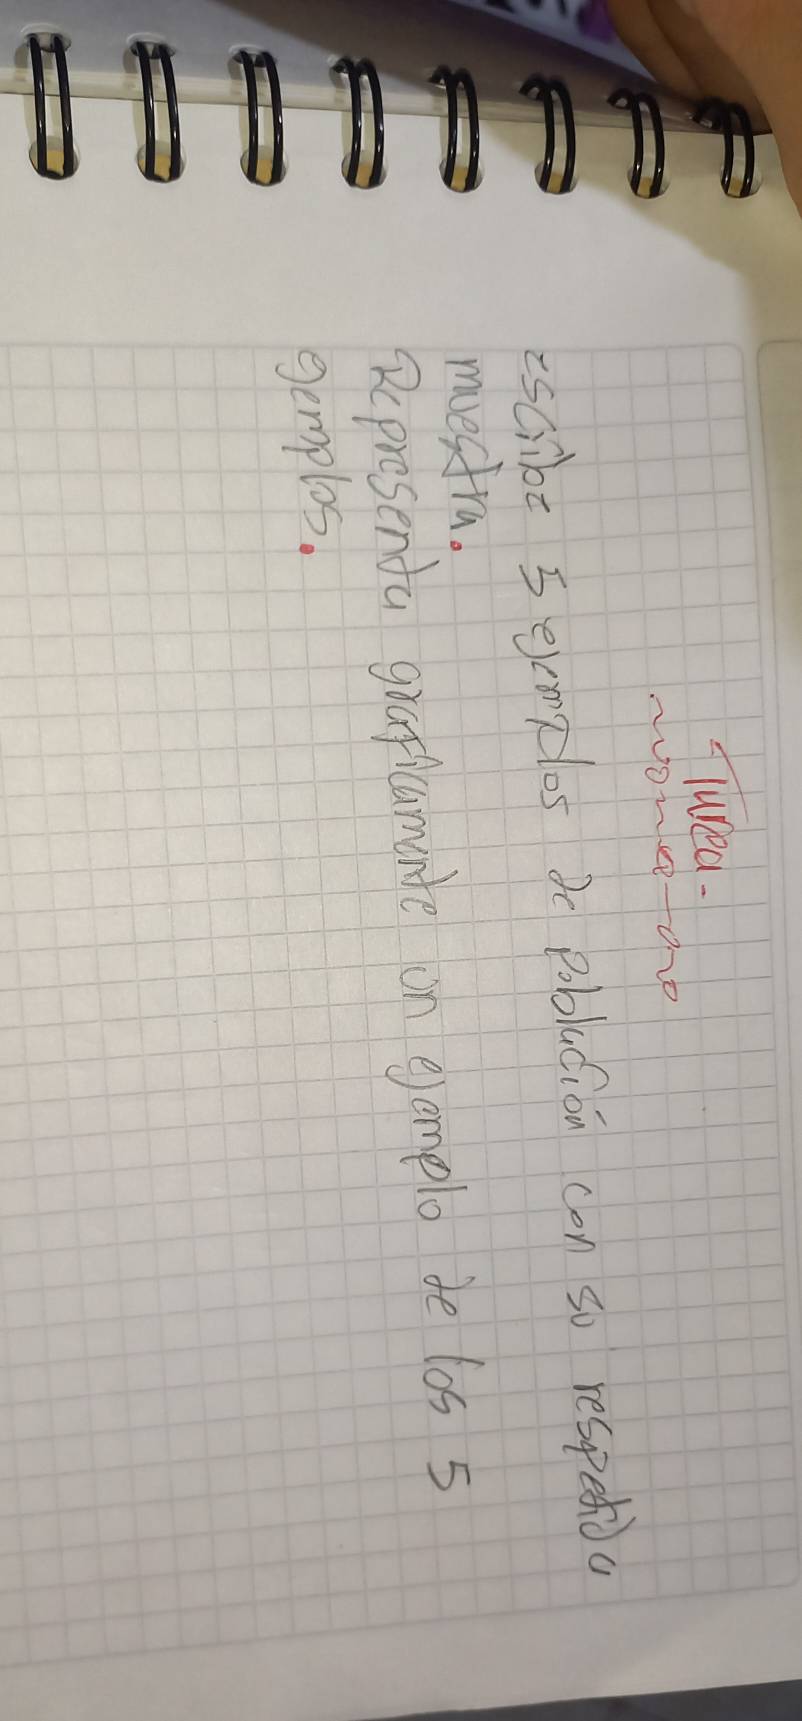 Tarea.
escribe 5 ejemplos de población con su respectiva
muestra.
Representa graficamente un ejemplo de los 5
ejemplos.